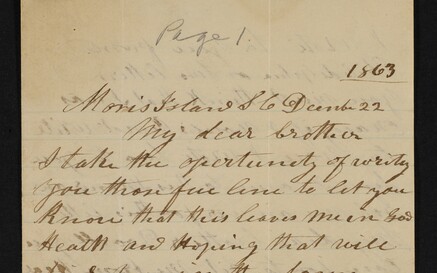 Page 1.
1863
Moris Island S C Decmbr 22
My dear brother
I take the oportunity of writing
you thos few line to let you
Know that this leaves me in God
Health and Hoping that will
the same